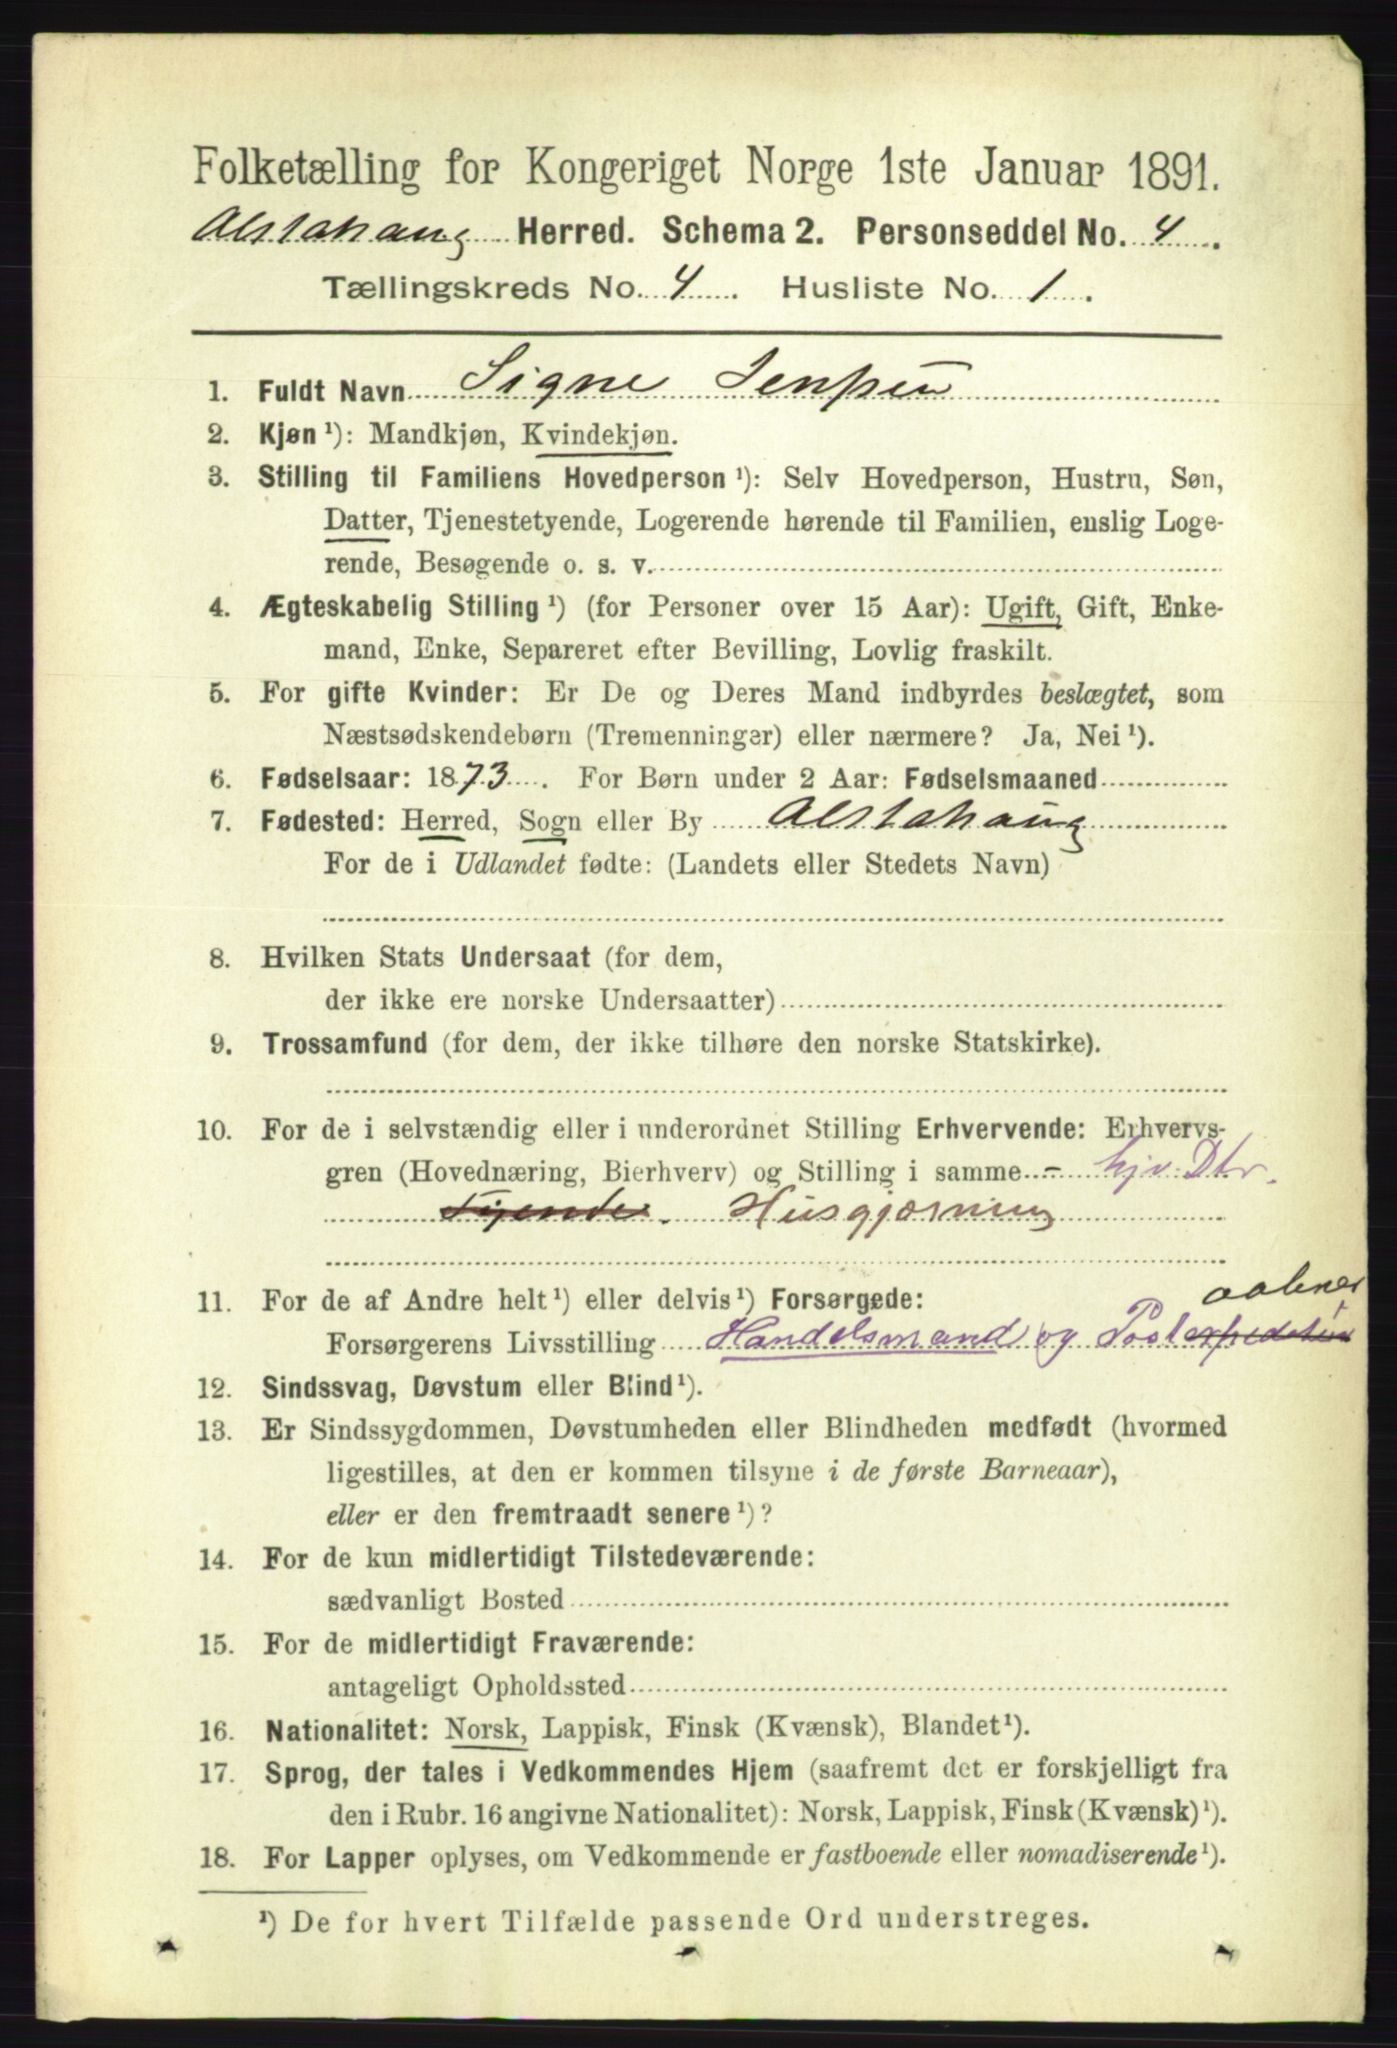 Folketælling for Kongeriget Norge 1ste Januar 1891.
Alstahaug Herred. Schema 2. Personseddel No. 4.
Tællingskreds No. 4. Husliste No. 1.
1. Fuldt Navn Signe Jenssen
2. Kjøn ¹): Mandkjøn, Kvindekjøn.
3. Stilling til Familiens Hovedperson ¹): Selv Hovedperson, Hustru, Søn,
Datter, Tjenestetyende, Logerende hørende til Familien, enslig Loge-
rende, Besøgende o. s. v.
4. Ægteskabelig Stilling ¹) (for Personer over 15 Aar): Ugift, Gift, Enke-
mand, Enke, Separeret efter Bevilling, Lovlig fraskilt.
5. For gifte Kvinder: Er De og Deres Mand indbyrdes beslægtet, som
Næstsødskendebørn (Tremenninger) eller nærmere? Ja, Nei ¹).
6. Fødselsaar: 1873. For Børn under 2 Aar: Fødselsmaaned
7. Fødested: Herred, Sogn eller By Alstahaug
For de i Udlandet fødte: (Landets eller Stedets Navn)
8. Hvilken Stats Undersaat (for dem,
der ikke ere norske Undersaatter)
9. Trossamfund (for dem, der ikke tilhøre den norske Statskirke).
10. For de i selvstændig eller i underordnet Stilling Erhvervende: Erhvervs-
gren (Hovednæring, Bierhverv) og Stilling i samme - hjv. Dtr.
Tyende. Husgjærning
aabner
11. For de af Andre helt ¹) eller delvis ¹) Forsørgede:
Forsørgerens Livsstilling Handelsmand og Postexpeditør
12. Sindssvag, Døvstum eller Blind ¹).
13. Er Sindssygdommen, Døvstumheden eller Blindheden medfødt (hvormed
ligestilles, at den er kommen tilsyne i de første Barneaar),
eller er den fremtraadt senere ¹)?
14. For de kun midlertidigt Tilstedeværende:
sædvanligt Bosted
15. For de midlertidigt Fraværende:
antageligt Opholdssted
16. Nationalitet: Norsk, Lappisk, Finsk (Kvænsk), Blandet ¹).
17. Sprog, der tales i Vedkommendes Hjem (saafremt det er forskjelligt fra
den i Rubr. 16 angivne Nationalitet): Norsk, Lappisk, Finsk (Kvænsk) ¹).
18. For Lapper oplyses, om Vedkommende er fastboende eller nomadiserende ¹).
¹) De for hvert Tilfælde passende Ord understreges.